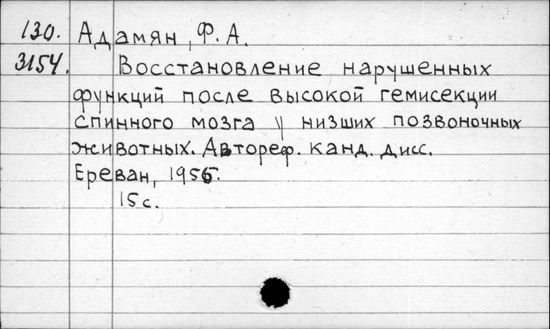 130. Адамян, Ф. А.
3154. Восстановление нарушенных
функций после высокой гемисекции
спинного мозга у низших позвоночных
животных. Автореф. канд. дисс.
Ереван, 1956.
15 с.